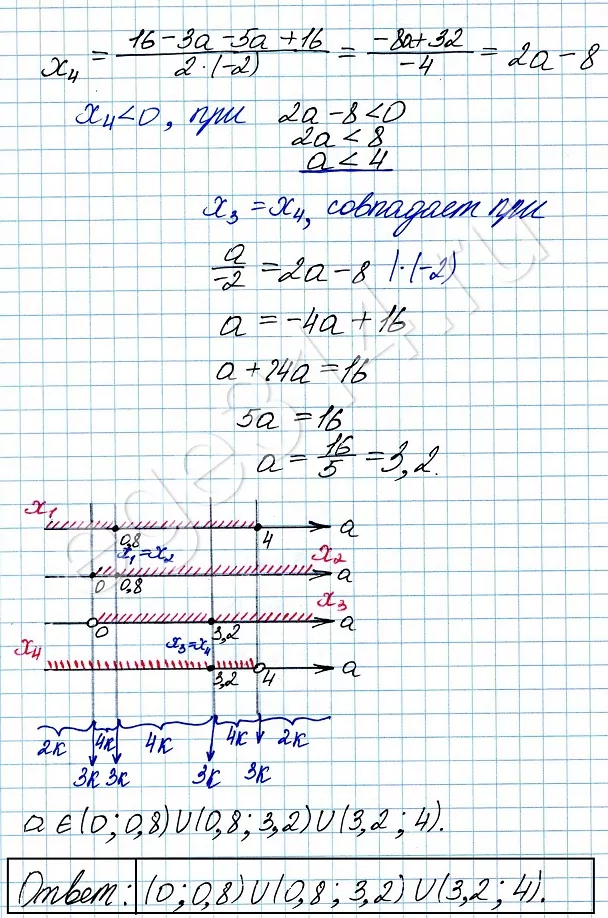 x₄ = (16 - 3a - 5a + 16)/(2·(-2)) = (-8a + 32)/(-4) = 2a - 8
x₄ < 0, при 2a - 8 < 0
2a < 8
a < 4
x₃ = x₄, совпадает при
a/(-2) = 2a - 8 |·(-2)
a = -4a + 16
a + 24a = 16
5a = 16
a = 16/5 = 3,2.
x₁ 0,8 4 a
x₁ = x₂ x₂
0 0,8 a
x₃
0 3,2 a
x₄ x₃ = x₄
3,2 4 a
2к 4к 4к 4к 2к
3к 3к 3к 3к
a ∈ (0; 0,8) ∪ (0,8; 3,2) ∪ (3,2; 4).
Ответ: (0; 0,8) ∪ (0,8; 3,2) ∪ (3,2; 4).
ege314.ru